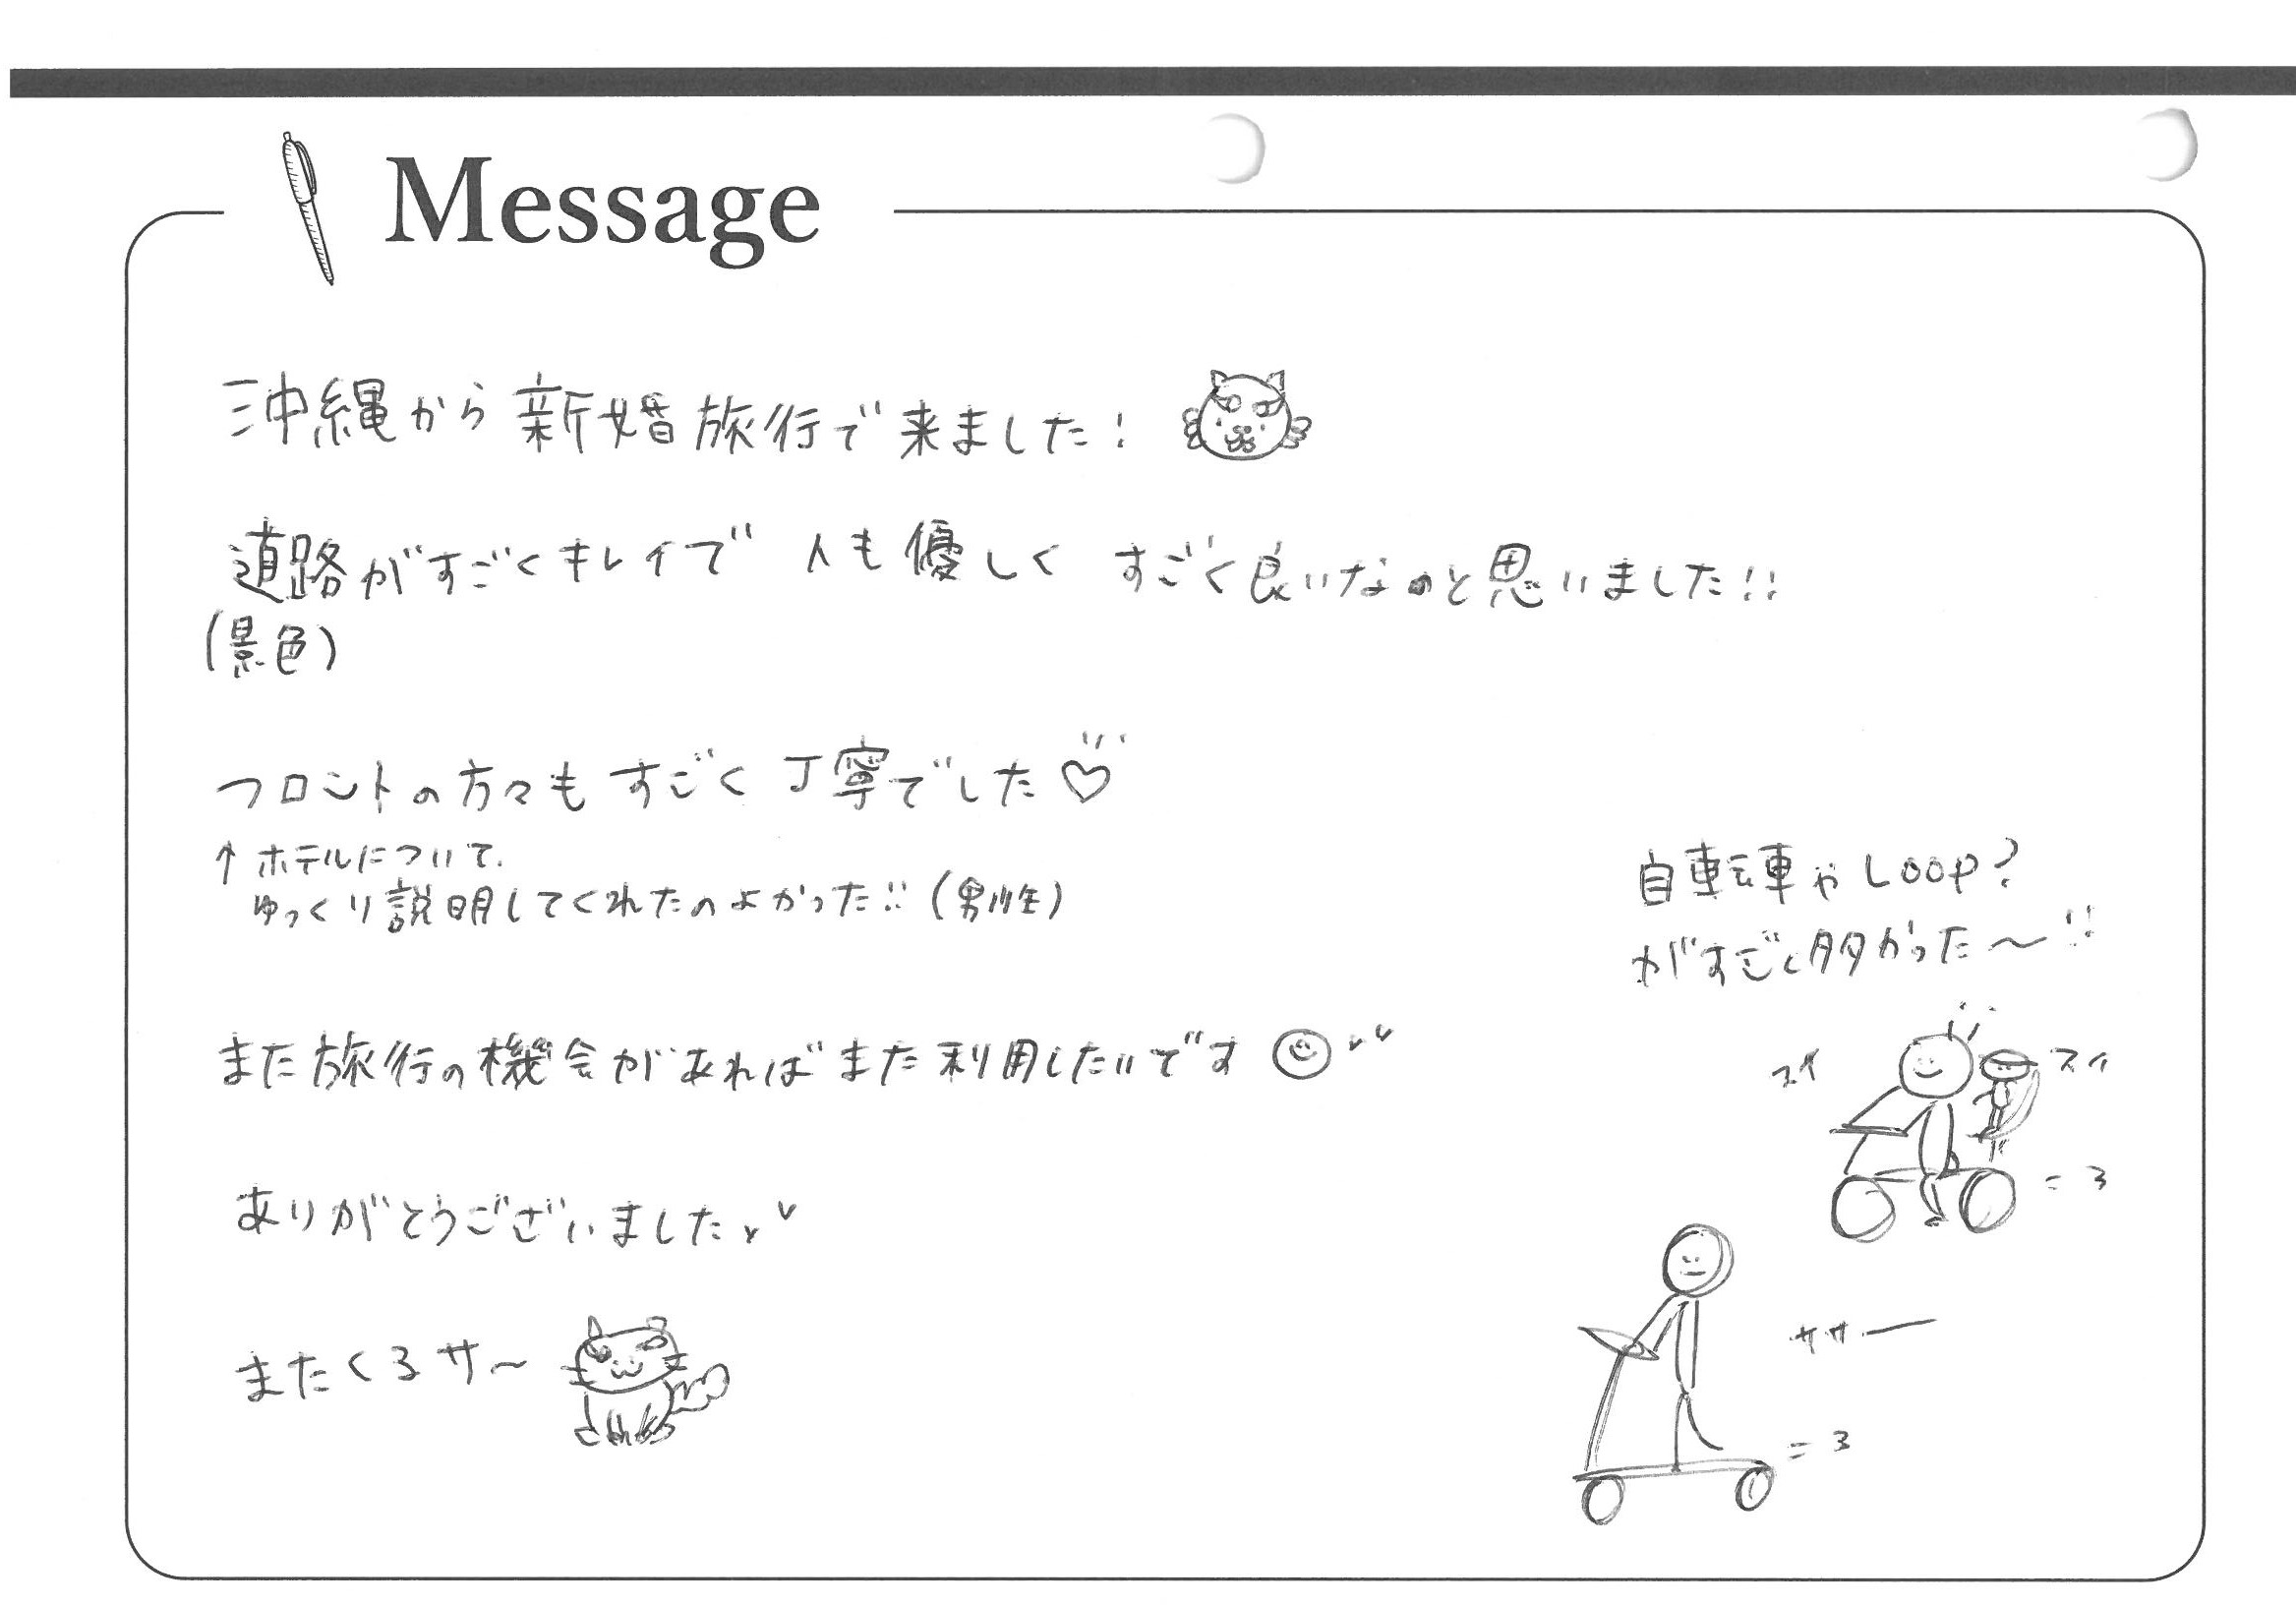 Message
沖縄から新婚旅行で来ました!
道路がすごくキレイで 人も優しく すごく良いなのと思いました!!
(景色)
フロントの方々も すごく 丁寧でした♡
↑ ホテルについて.
ゆっくり説明してくれたのよかった!! (男性)
自転車やLOOP?
がすごく多かった〜!!
また旅行の機会があればまた利用したいです
スイ スイ
=3
ありがとうございました
ササー
またくるサ〜
=3